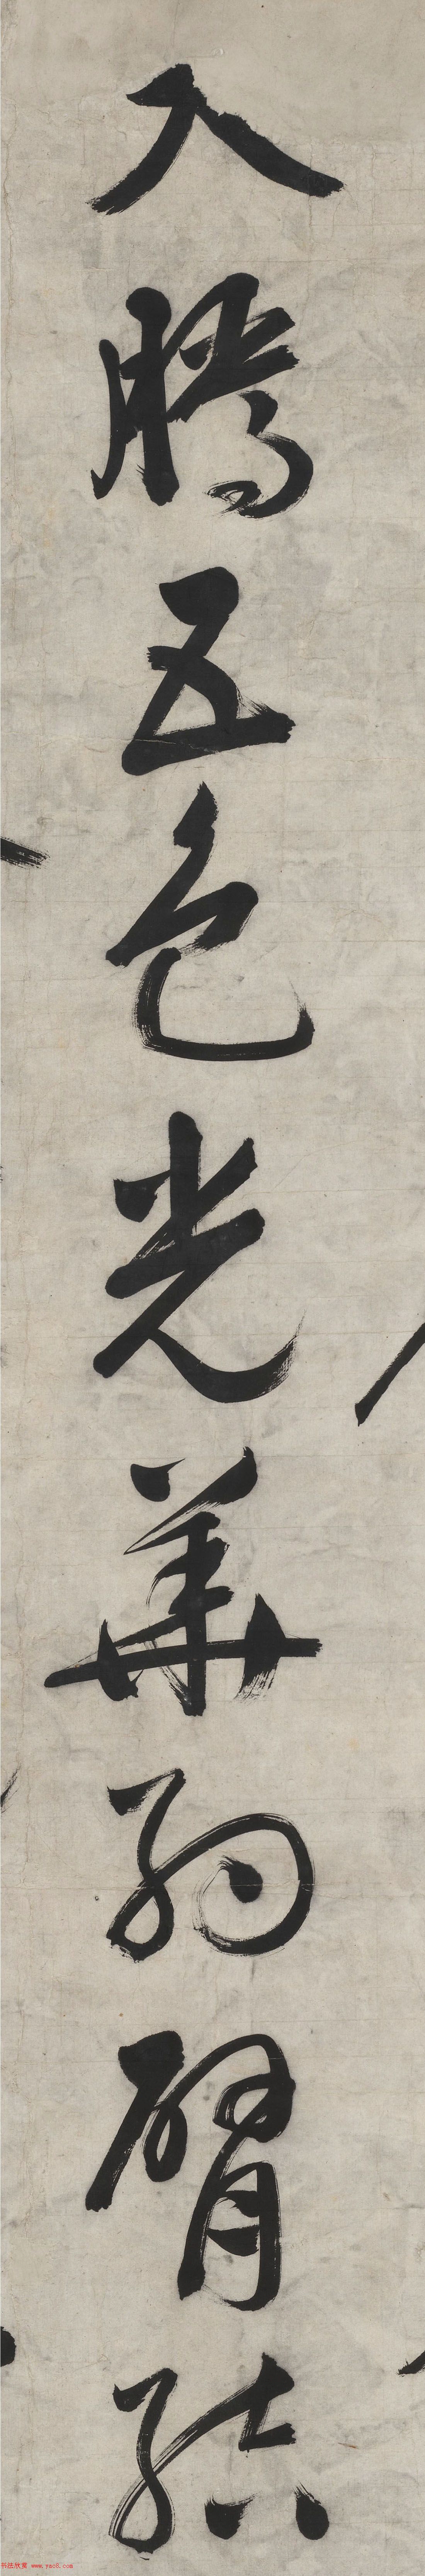 入腾五色光華約臂結
书法欣赏 www.yac8.com